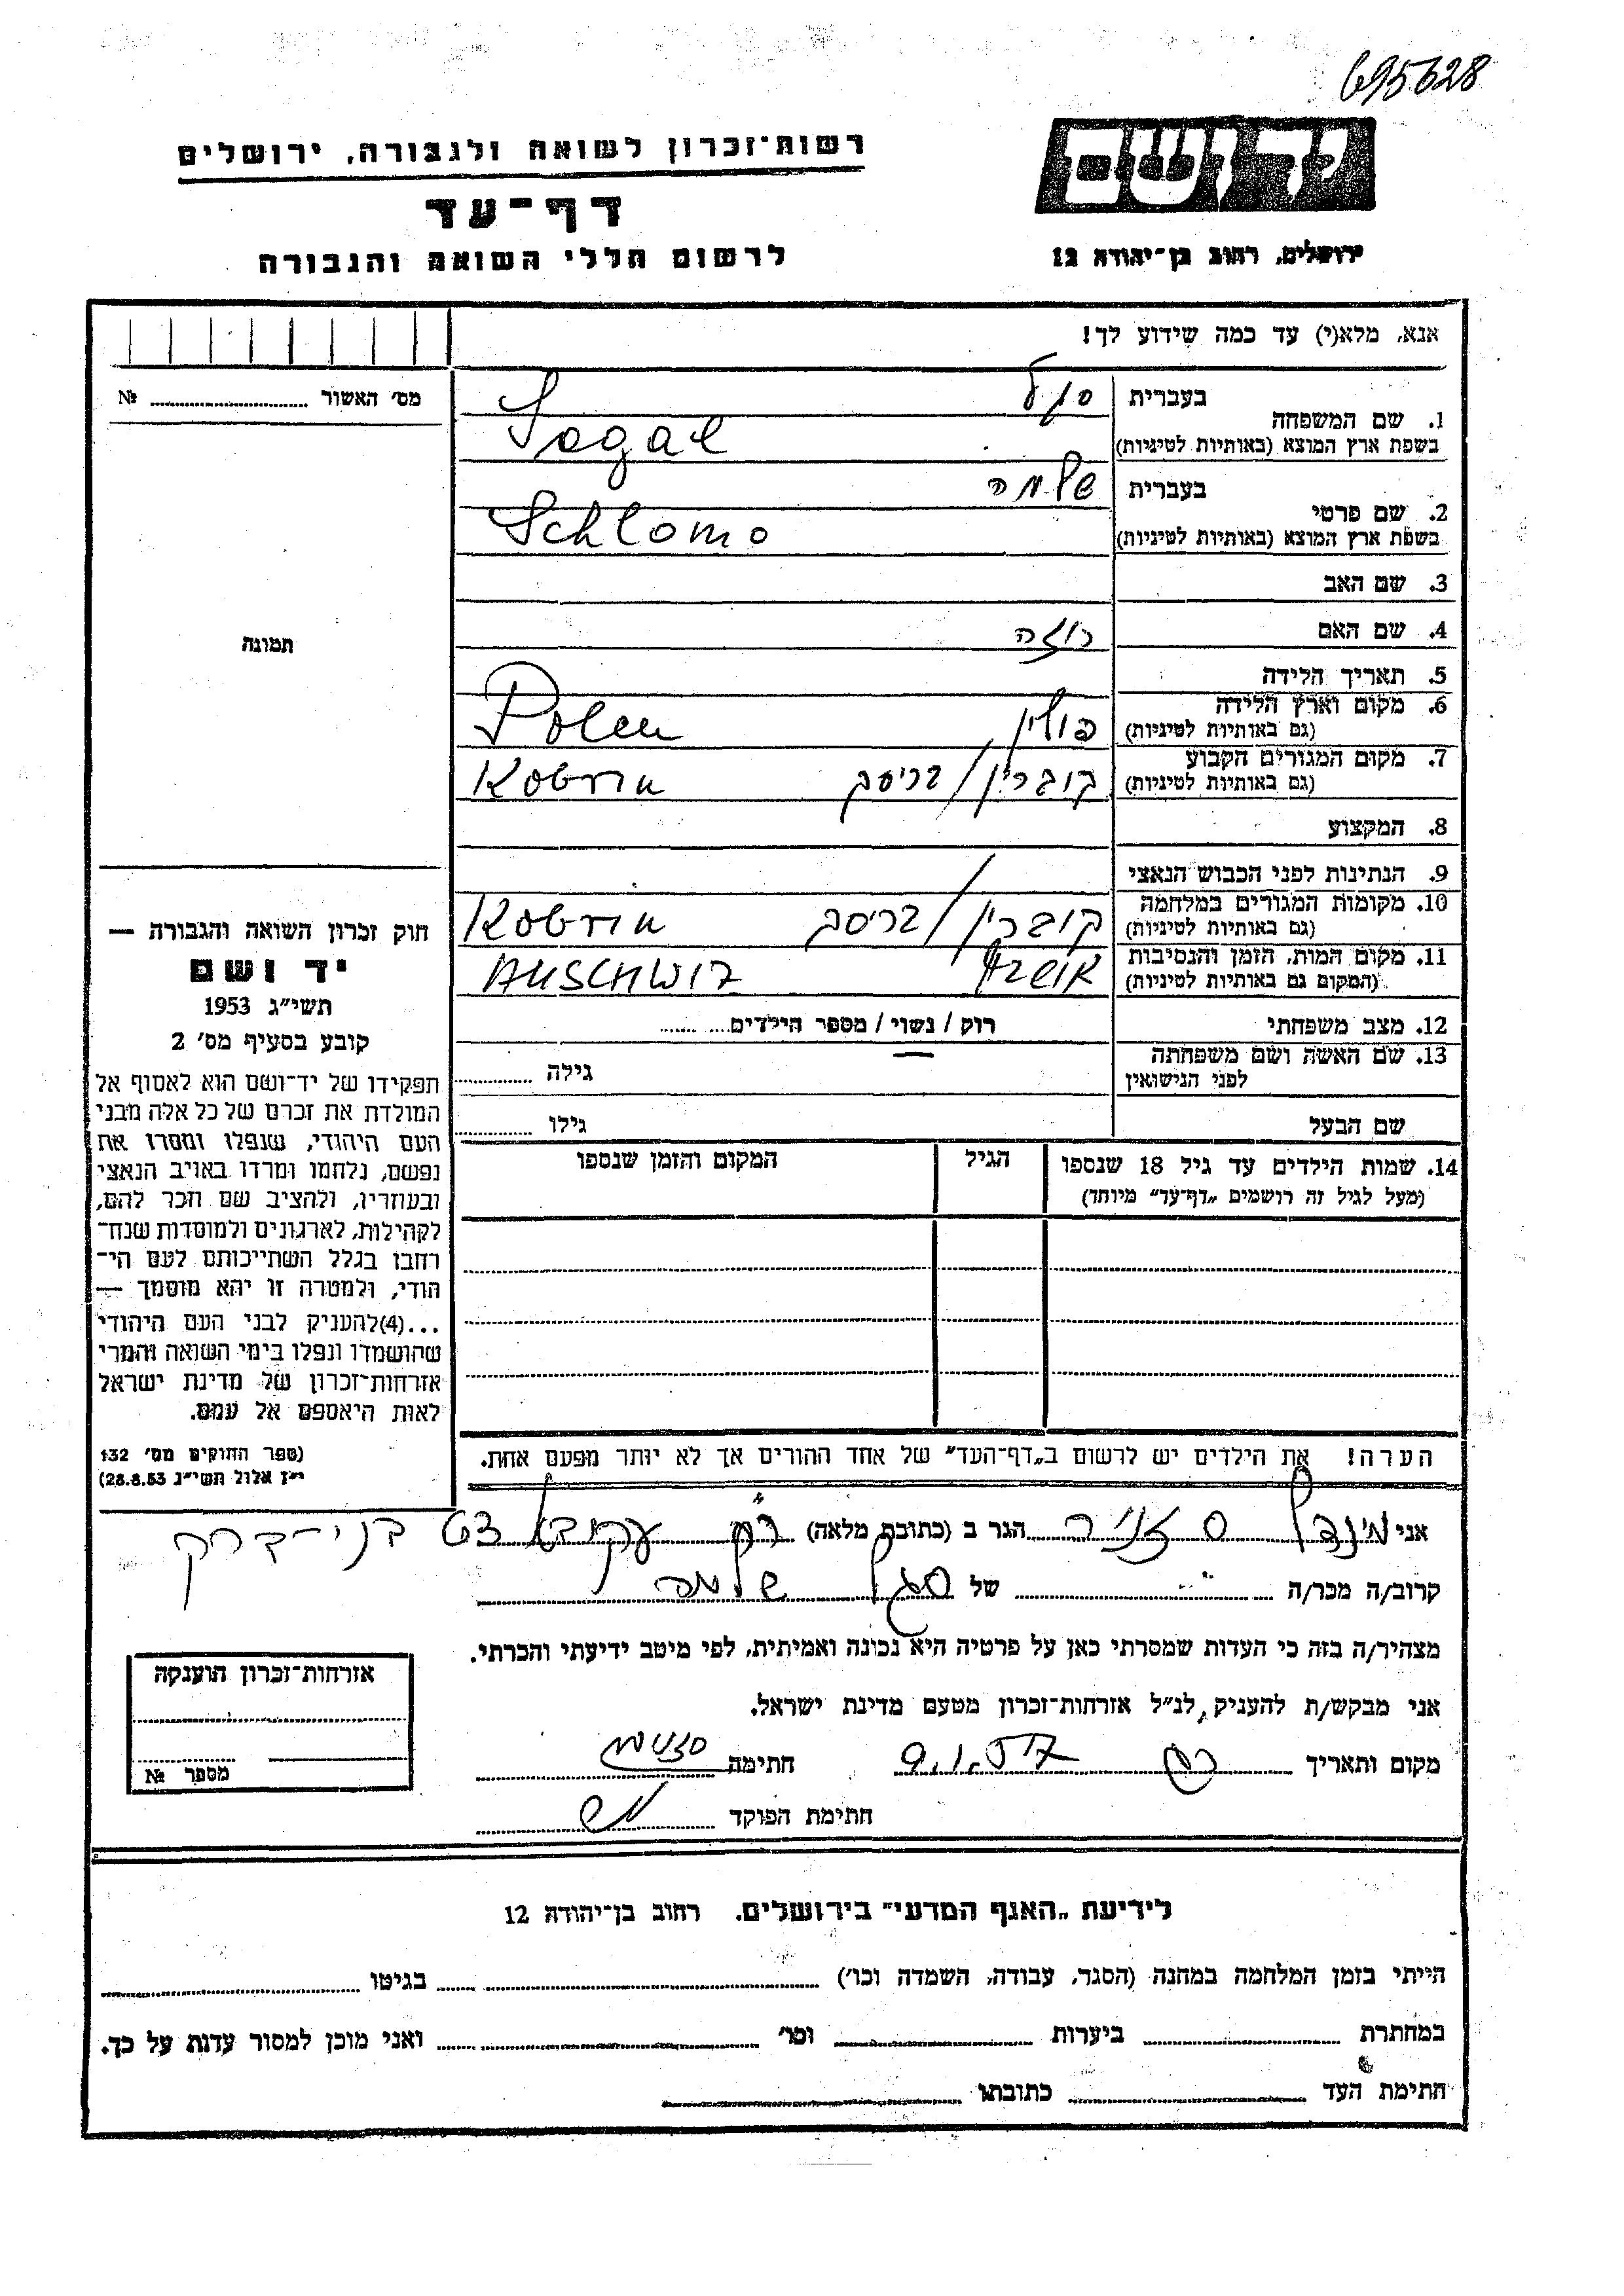 695628
יד ושם
ירושלים, רחוב בן־יהודה 12
רשות־זכרון לשואה ולגבורה, ירושלים
דף־עד
לרשום חללי השואה והגבורה
אנא, מלא(י) עד כמה שידוע לך!
מס׳ האשור № ........
1. שם המשפחה
בעברית סגל
בשפת ארץ המוצא (באותיות לטיניות) Segal
2. שם פרטי
בעברית שלמה
בשפת ארץ המוצא (באותיות לטיניות) Schlomo
3. שם האב
4. שם האם רוזה
5. תאריך הלידה
6. מקום וארץ הלידה פולין Polen
(גם באותיות לטיניות)
7. מקום המגורים הקבוע קוברין/בריסק Kobrin
(גם באותיות לטיניות)
8. המקצוע
9. הנתינות לפני הכבוש הנאצי
10. מקומות המגורים במלחמה קוברין/בריסק Kobrin
(גם באותיות לטיניות)
11. מקום המות, הזמן והנסיבות AUSCHWITZ
(המקום גם באותיות לטיניות)
12. מצב משפחתי רוק / נשוי / מספר הילדים ........
13. שם האשה ושם משפחתה
לפני הנישואין גילה ........
שם הבעל גילו ........
14. שמות הילדים עד גיל 18 שנספו הגיל המקום והזמן שנספו
(מעל לגיל זה רושמים „דף־עד״ מיוחד)
הערה! את הילדים יש לרשום ב„דף־העד״ של אחד ההורים אך לא יותר מפעם אחת.
תמונה
חוק זכרון השואה והגבורה —
יד ושם
תשי״ג 1953
קובע בסעיף מס׳ 2
תפקידו של יד־ושם הוא לאסוף אל
המולדת את זכרם של כל אלה מבני
העם היהודי, שנפלו ומסרו את
נפשם, נלחמו ומרדו באויב הנאצי
ובעוזריו, ולהציב שם וזכר להם,
לקהילות, לארגונים ולמוסדות שנח־
רחבו בגלל השתייכותם לעם הי־
הודי, ולמטרה זו יהא מוסמך —
...(4)להעניק לבני העם היהודי
שהושמדו ונפלו בימי השואה והמרי
אזרחות־זכרון של מדינת ישראל
לאות היאספם אל עמם.
(ספר החוקים מס׳ 132
י״ז אלול תשי״ג 28.8.53)
אני מינדל הגר ב (כתובת מלאה) עקיבא בני־ברק
קרוב/ה מכר/ה ........ של סגל שלמה
מצהיר/ה בזה כי העדות שמסרתי כאן על פרטיה היא נכונה ואמיתית, לפי מיטב ידיעתי והכרתי.
אני מבקש/ת להעניק לנ״ל אזרחות־זכרון מטעם מדינת ישראל.
מקום ותאריך חתימה
חתימת הפוקד
אזרחות־זכרון הוענקה
מספר №
לידיעת „האגף המדעי״ בירושלים. רחוב בן־יהודה 12
הייתי בזמן המלחמה במחנה (הסגר, עבודה, השמדה וכו׳) ........ בגיטו ........
במחתרת ........ ביערות ........ וכו׳ ........ ואני מוכן למסור עדות על כך.
חתימת העד ........ כתובתו ........